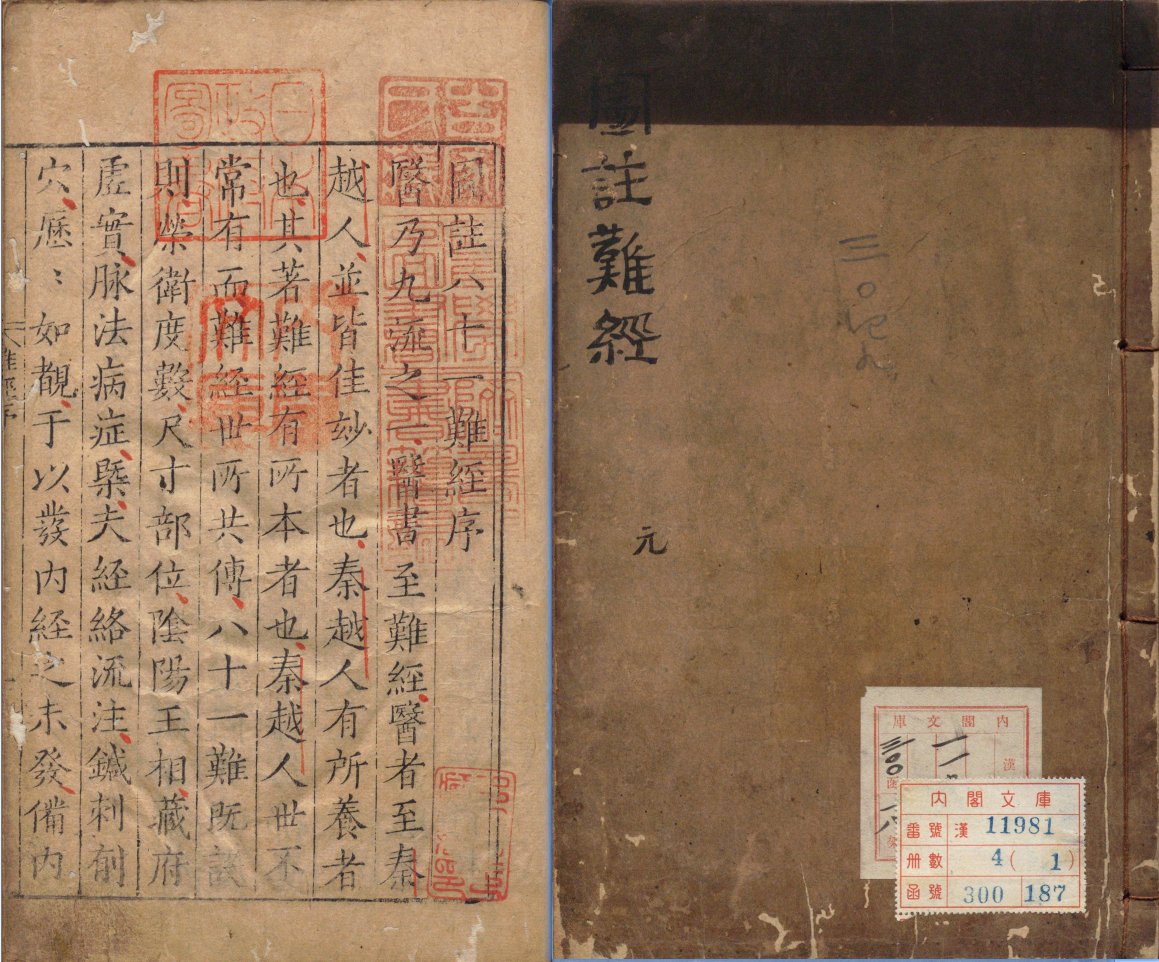 圖註難經
元
三〇
內閣文庫
漢
內閣文庫
番號 漢 11981
冊數 4(1)
函號 300 187
圖註八十一難經序
醫乃九流之一醫書至難經醫者至秦
越人並皆佳妙者也秦越人有所養者
也其著難經有所本者也秦越人世不
常有而難經世所共傳八十一難既設
則榮衛度數尺寸部位陰陽王相藏府
虛實脉法病症槩夫経絡流注鍼刺削
穴歷〻如覩于以發內経之未發備內
難經序
日本